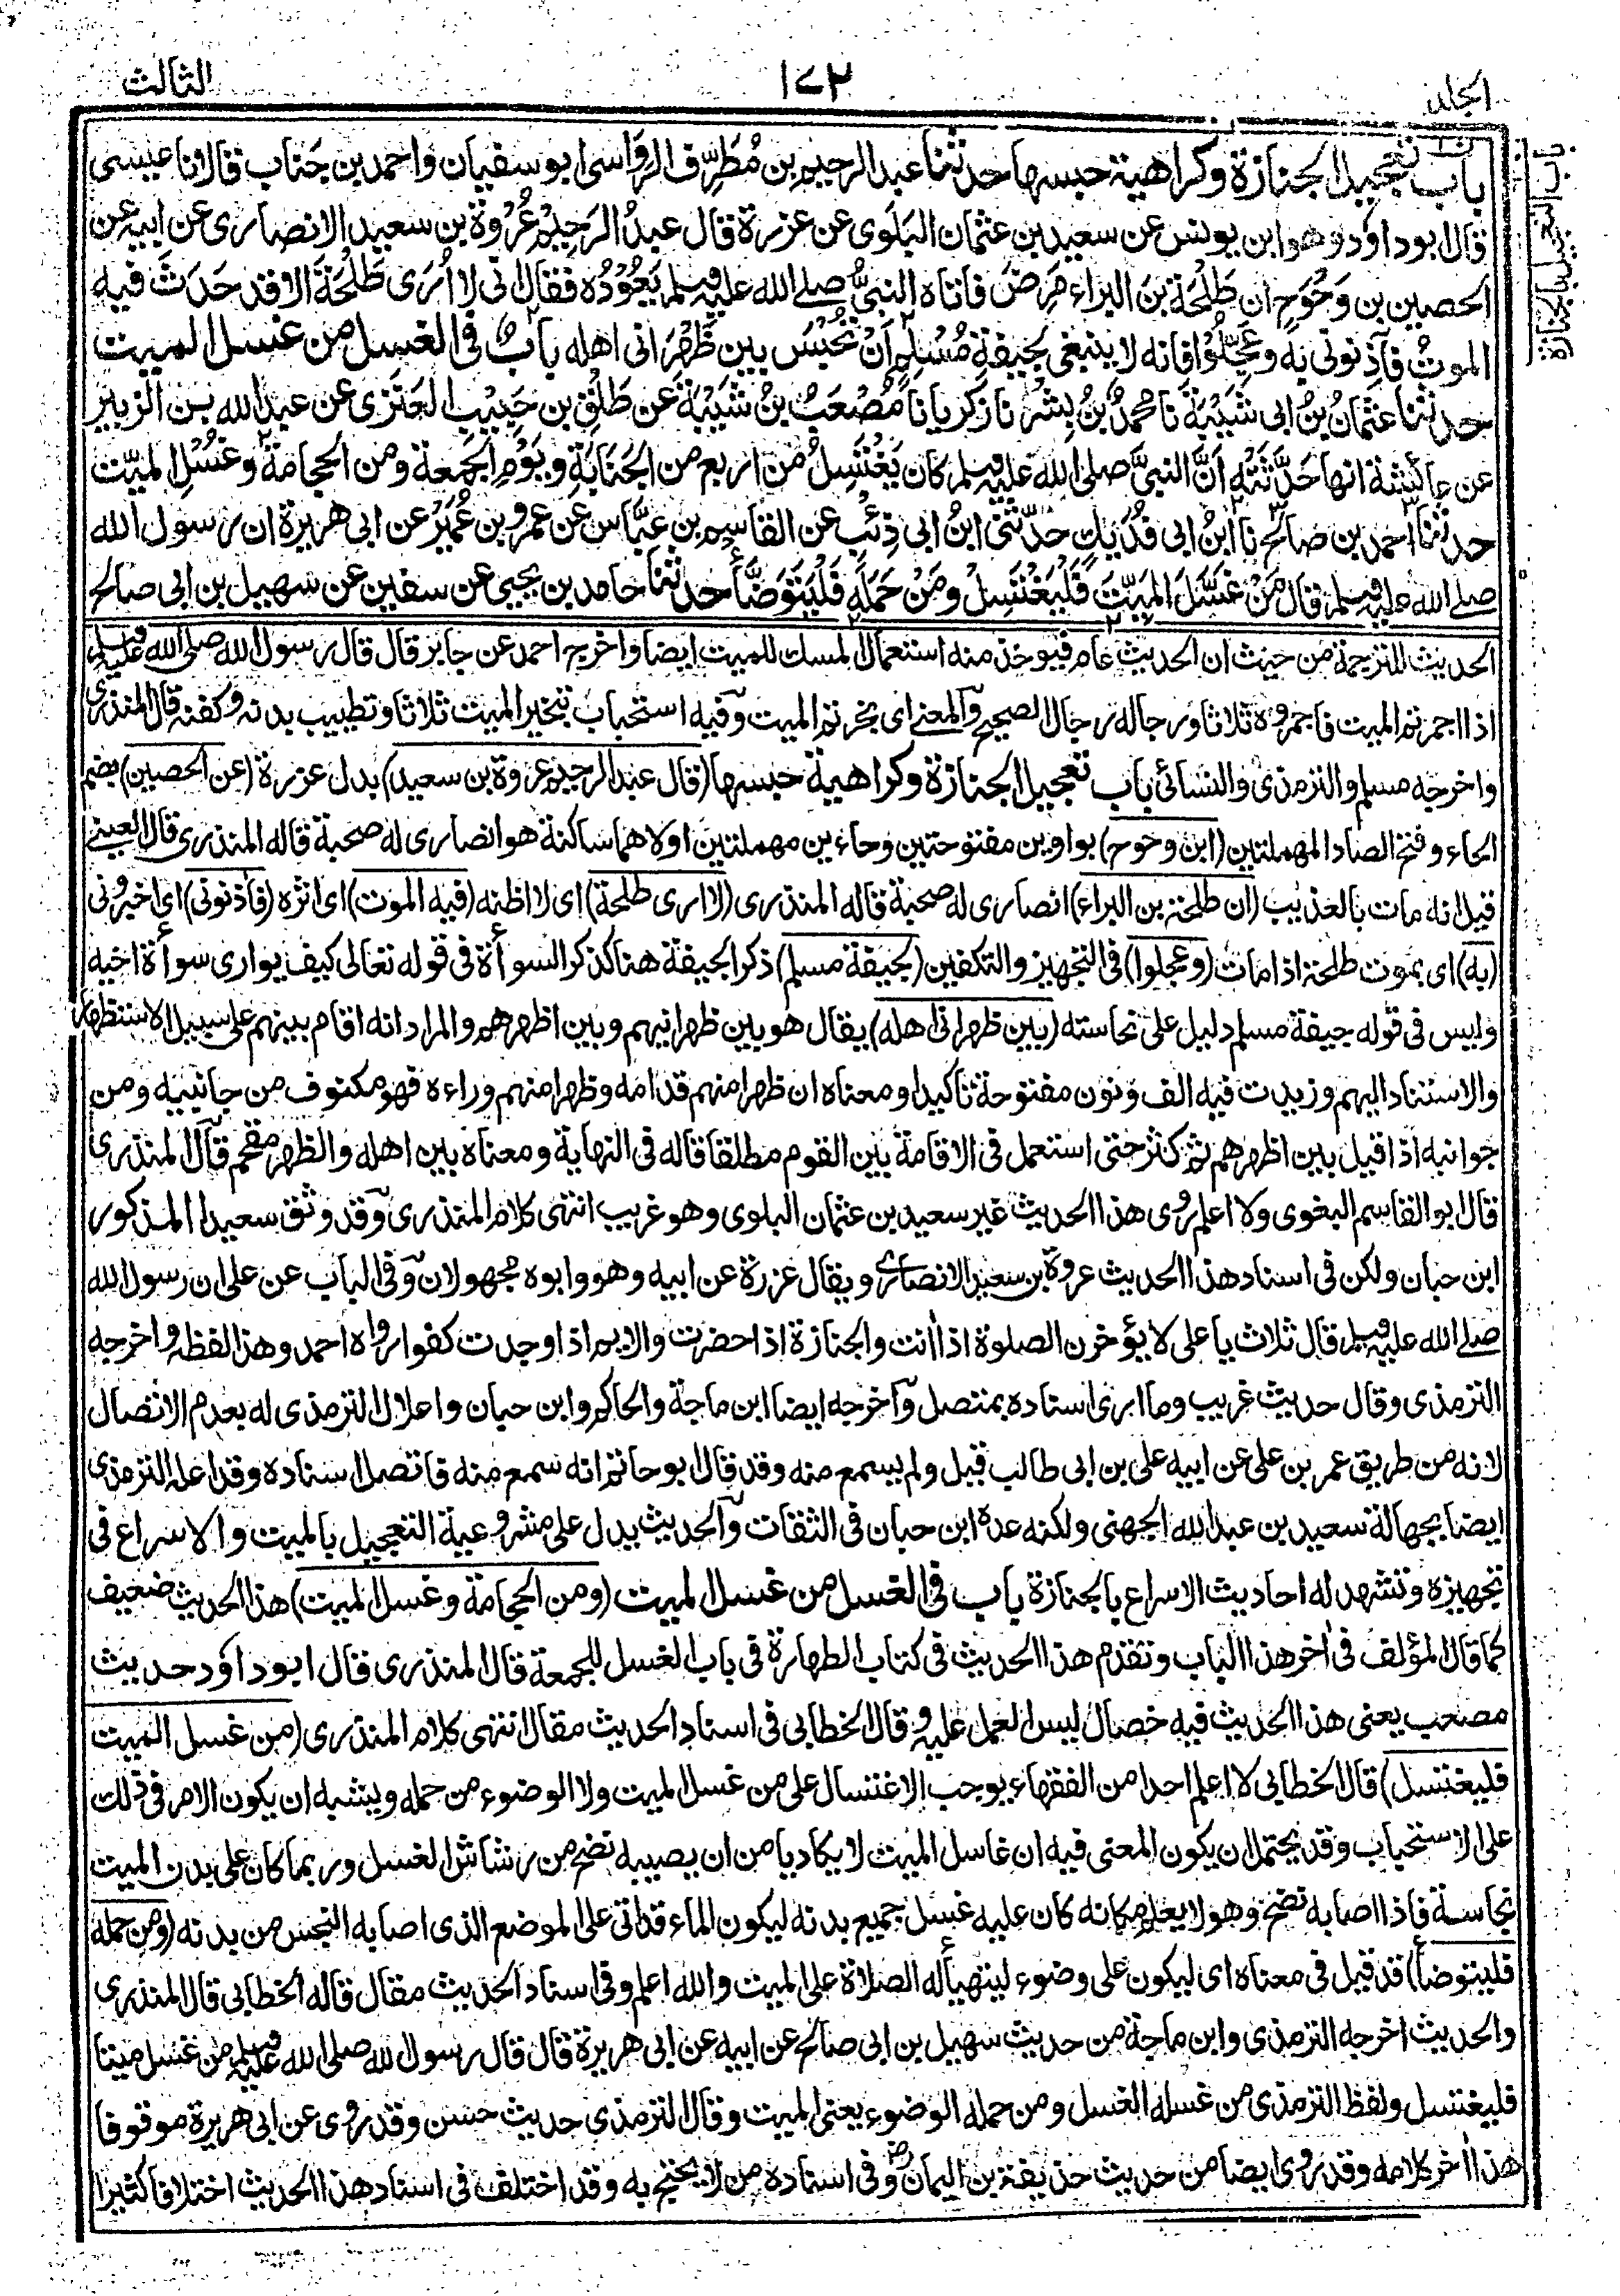 الجلد
١٧٢
الثالث
باب التعجيل بالجنازة
باب تعجيل الجنازة وكراهية حبسها حدثنا عبد الرحيم بن مُطَرِّف الرؤاسى ابو سفيان واحمد بن جَنَاب قالا نا عيسى
قال ابو داود وهو ابن يونس عن سعيد بن عثمان البَلَوى عن عزرة قال عبدُ الرَحِيْمِ عُرْوَة بن سعيد الانصارى عن ابيه عن
الحصين بن وَحْوَح ان طَلْحَة بنَ البراء مَرِضَ فاتاه النبىُّ صلى الله عليه وسلم يَعُوْدُه فقال انى لا اُرَى طَلْحَةَ الا قد حَدَثَ فيه
الموتُ فآذِنونى به وعَجِّلُوا فانه لا ينبغى لجيفةِ مُسْلِمٍ اَنْ تُحْبَسَ بين ظَهْرَانى اهله بابٌ فى الغسل من غسل الميت
حدثنا عثمان بن ابى شَيْبَةَ نا محمدُ بنُ بِشْر نا زكريا نا مُصْعَبُ بنُ شَيْبَةَ عن طَلْقِ بن حَبِيْبِ العَنَزى عن عبد الله بن الزبير
عن عائشة انها حَدَّثَتْه اَنَّ النبىَّ صلى الله عليه وسلم كان يَغْتَسِلُ من اربع من الجَنَابَةِ ويَوْمِ الجمعة ومن الحجامة وغُسْلِ الميّت
حدثنا احمد بن صالح نا ابنُ ابى فُدَيْكٍ حدّثنى ابنُ ابى ذِئْبٍ عن القاسم بن عَبَّاس عن عمرو بن عُمَيْر عن ابى هريرة ان رسول الله
صلى الله عليه وسلم قال مَنْ غَسَّلَ المَيِّتَ فَلْيَغْتَسِلْ ومَنْ حَمَلَه فَلْيَتَوَضَّأْ حدثنا حامد بن يحيى عن سفين عن سهيل بن ابى صالح
الحديث للترجمة من حيث ان الحديث عام فيوخذ منه استعمال المسك للميت ايضا واخرج احمد عن جابر قال قال رسول الله صلى الله عليه وسلم
اذا اجمرتم الميت فاجمروه ثلاثا ورجاله رجال الصحيح والمعنى اى بخرتم الميت وفيه استحباب تبخير الميت ثلاثا وتطييب بدنه وكفنه قال المنذرى
واخرجه مسلم والترمذى والنسائى باب تعجيل الجنازة وكراهية حبسها (قال عبد الرحيم عروة بن سعيد) بدل عزرة (عن الحصين) بضم
الحاء وفتح الصاد المهملتين (ابن وحوح) بواوين مفتوحتين وحاءين مهملتين اولاهما ساكنة هو انصارى له صحبة قاله المنذرى قال العينى
قيل انه مات بالعذيب (ان طلحة بن البراء) انصارى له صحبة قاله المنذرى (لا ارى طلحة) اى لا اظنه (فيه الموت) اى اثره (فآذنونى) اى اخبرونى
(به) اى بموت طلحة اذا مات (وعجلوا) فى التجهيز والتكفين (لجيفة مسلم) ذكر الجيفة هنا كذكر السوأة فى قوله تعالى كيف يوارى سوأة اخيه
وليس فى قوله جيفة مسلم دليل على نجاسته (بين ظهرانى اهله) يقال هو بين ظهرانيهم وبين اظهرهم والمراد انه اقام بينهم على سبيل الاستظهار
والاستناد اليهم وزيدت فيه الف ونون مفتوحة تاكيدا ومعناه ان ظهرا منهم قدامه وظهرا منهم وراءه فهو مكنوف من جانبيه ومن
جوانبه اذا قيل بين اظهرهم ثم كثر حتى استعمل فى الاقامة بين القوم مطلقا قاله فى النهاية ومعناه بين اهله والظهر مقحم قال المنذرى
قال ابو القاسم البغوى ولا اعلم روى هذا الحديث غير سعيد بن عثمان البلوى وهو غريب انتهى كلام المنذرى وقد وثق سعيدا المذكور
ابن حبان ولكن فى اسناد هذا الحديث عروة بن سعيد الانصارى ويقال عزرة عن ابيه وهو وابوه مجهولان وفى الباب عن على ان رسول الله
صلى الله عليه وسلم قال ثلاث يا على لا يؤخرن الصلوة اذا انت والجنازة اذا حضرت والايم اذا وجدت كفوا رواه احمد وهذا لفظه واخرجه
الترمذى وقال حديث غريب وما ارى اسناده بمتصل وآخرجه ايضا ابن ماجة والحاكم وابن حبان واعلال الترمذى له بعدم الاتصال
لانه من طريق عمر بن على عن ابيه على بن ابى طالب قيل ولم يسمع منه وقد قال ابو حاتم انه سمع منه فاتصل اسناده وقد اعله الترمذى
ايضا بجهالة سعيد بن عبد الله الجهنى ولكنه عده ابن حبان فى الثقات والحديث يدل على مشروعية التعجيل بالميت والاسراع فى
تجهيزه وتشهد له احاديث الاسراع بالجنازة باب فى الغسل من غسل الميت (ومن الحجامة وغسل الميت) هذا الحديث ضعيف
كما قال المؤلف فى اخر هذا الباب وتقدم هذا الحديث فى كتاب الطهارة فى باب الغسل للجمعة قال المنذرى قال ابو داود حديث
مصعب يعنى هذا الحديث فيه خصال ليس العمل عليه وقال الخطابى فى اسناد الحديث مقال انتهى كلام المنذرى (من غسل الميت
فليغتسل) قال الخطابى لا اعلم احدا من الفقهاء يوجب الاغتسال على من غسل الميت ولا الوضوء من حمله ويشبه ان يكون الامر فى ذلك
على الاستحباب وقد يحتمل ان يكون المعنى فيه ان غاسل الميت لا يكاد يامن ان يصيبه نضح من رشاش الغسل وربما كان على بدن الميت
نجاسة فاذا اصابه نضح وهو لا يعلم مكانه كان عليه غسل جميع بدنه ليكون الماء قد اتى على الموضع الذى اصابه النجس من بدنه (ومن حمله
فليتوضأ) قد قيل فى معناه اى ليكون على وضوء ليتهيأ له الصلاة على الميت والله اعلم وفى اسناد الحديث مقال قاله الخطابى قال المنذرى
والحديث اخرجه الترمذى وابن ماجة من حديث سهيل بن ابى صالح عن ابيه عن ابى هريرة قال قال رسول الله صلى الله عليه وسلم من غسل ميتا
فليغتسل ولفظ الترمذى من غسله الغسل ومن حمله الوضوء يعنى الميت وقال الترمذى حديث حسن وقد روى عن ابى هريرة موقوفا
هذا اخر كلامه وقد روى ايضا من حديث حذيفة بن اليمان رض وفى اسناده من لا يحتج به وقد اختلف فى اسناد هذا الحديث اختلافا كثيرا